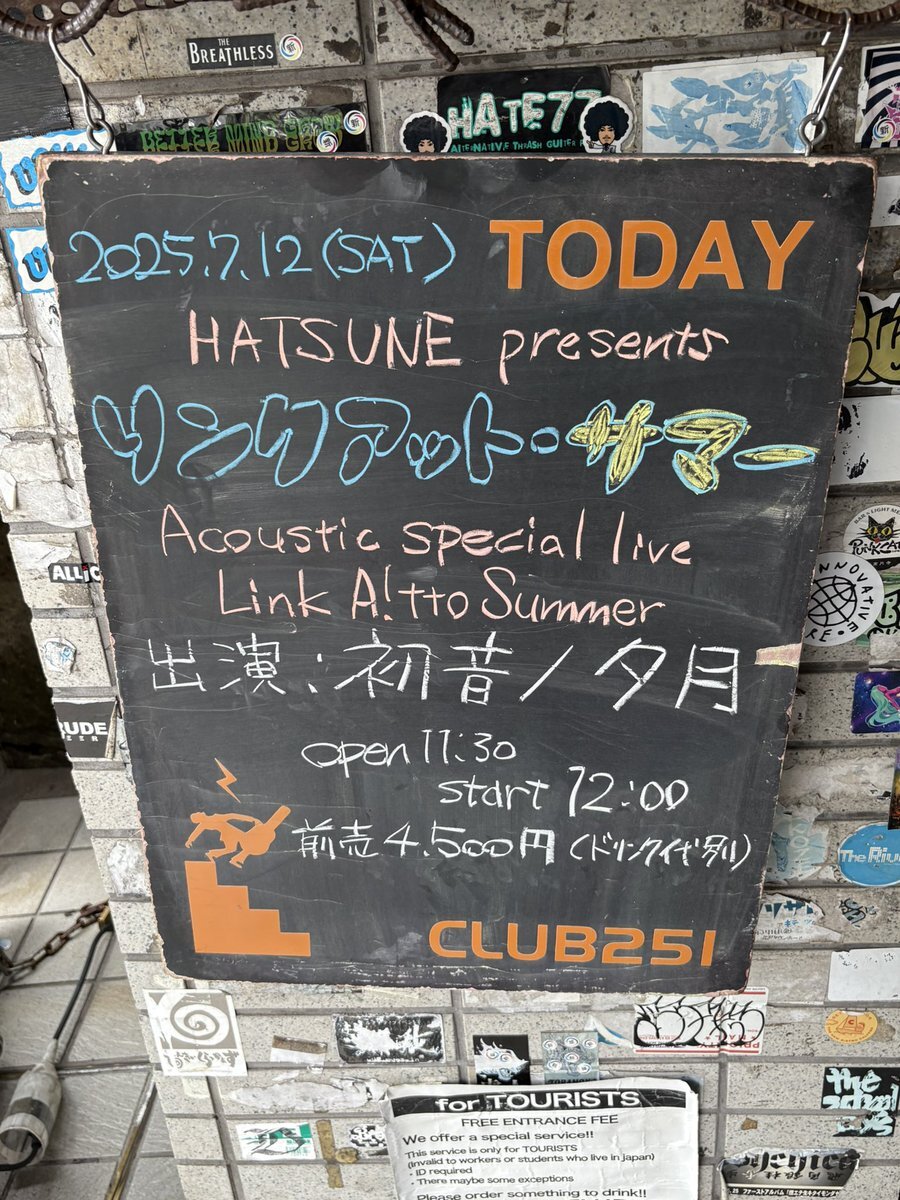 THE
BREATHLESS
BETTER MIND
HATE77
ALTERNATIVE THRASH GUITER
2025.7.12(SAT) TODAY
HATSUNE presents
リンクアット・サマー
Acoustic special live
Link A!tto Summer
出演:初音/夕月
open 11:30
start 12:00
前売4.500円(ドリンク代別)
CLUB251
PUNKCAT
INNOVATIVE
ALLiC
RUDE
The Riv
for TOURISTS
FREE ENTRANCE FEE
We offer a special service!!
This service is only for TOURISTS
(invalid to workers or students who live in japan)
・ID required
・There maybe some exceptions
Please order something to drink!!
the